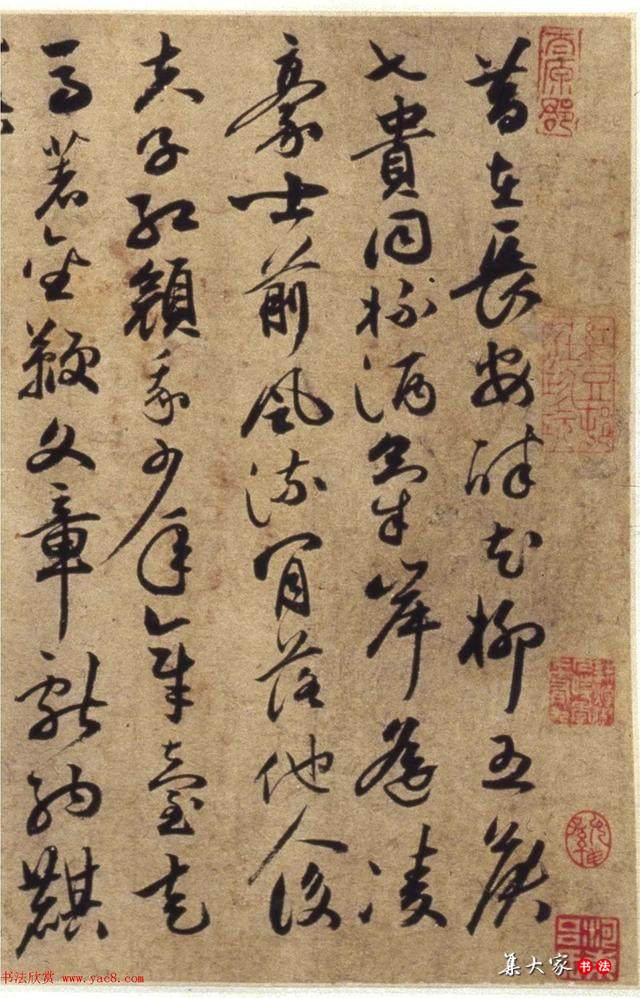 昔在長安醉花柳五侯
七貴同杯酒氣岸遙凌
豪士前風流肯落他人後
夫子紅顏我少年章臺走
馬著金鞭文章獻納麒
集大家书法
书法欣赏 www.yac8.com